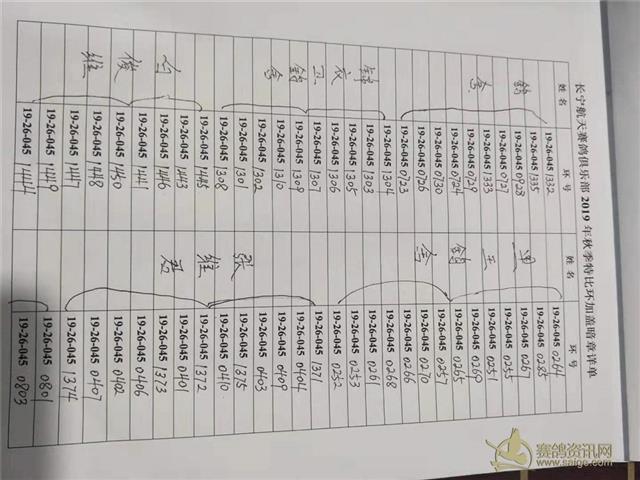 长宁航天赛鸽俱乐部 2019 年秋季特比环加盖暗章详单
姓名 环号 姓名 环号
19-26-045 1332 19-26-045 0264
19-26-045 1335 19-26-045 0285
19-26-045 0928 19-26-045 0267
19-26-045 0727 19-26-045 0255
19-26-045 1333 19-26-045 0251
19-26-045 0729 19-26-045 0269
19-26-045 0724 19-26-045 0265
19-26-045 0730 19-26-045 0257
19-26-045 0726 舍 19-26-045 0270
19-26-045 0723 19-26-045 0266
19-26-045 1304 19-26-045 0268
19-26-045 1303 19-26-045 0261
衣 19-26-045 1305 19-26-045 0253
卫 19-26-045 1306 19-26-045 0252
19-26-045 1307 19-26-045 1371
19-26-045 1309 19-26-045 0404
舍 19-26-045 1310 19-26-045 0409
19-26-045 1302 19-26-045 0403
19-26-045 1301 张 19-26-045 1375
19-26-045 1308 19-26-045 0410
19-26-045 1445 维 19-26-045 1372
19-26-045 1443 19-26-045 0401
19-26-045 1446 君 19-26-045 1373
19-26-045 1441 19-26-045 0406
俊 19-26-045 1450 19-26-045 0402
维 19-26-045 1448 19-26-045 0407
19-26-045 1447 19-26-045 1374
19-26-045 1449 19-26-045 0801
19-26-045 1444 19-26-045 0803
赛鸽资讯网
www.saige.com